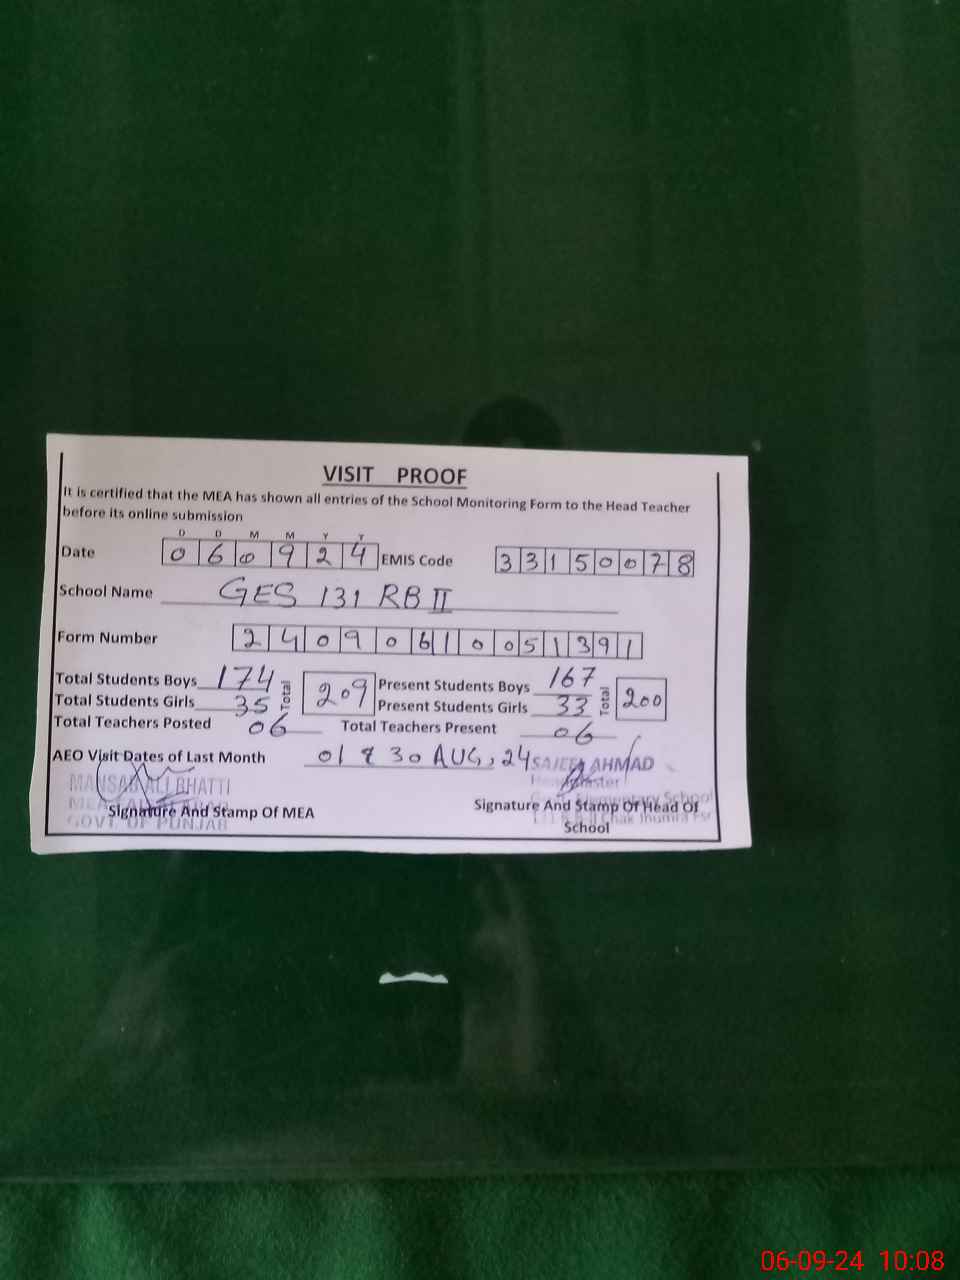 VISIT PROOF
It is certified that the MEA has shown all entries of the School Monitoring Form to the Head Teacher
before its online submission
D D M M Y Y
Date 060924 EMIS Code 33150078
School Name GES 131 RB II
Form Number 24090610051391
Total Students Boys 174 Total 209 Present Students Boys 167 Total 200
Total Students Girls 35 Present Students Girls 33
Total Teachers Posted 06 Total Teachers Present 06
AEO Visit Dates of Last Month 01 & 30 AUG, 24
AHMAD
MANSAB ALI BHATTI
MEA
GOVT. OF PUNJAB
Signature And Stamp Of MEA
Headmaster
Elementary School
Chak Jhumra Fsd
Signature And Stamp Of Head Of
School
06-09-24 10:08